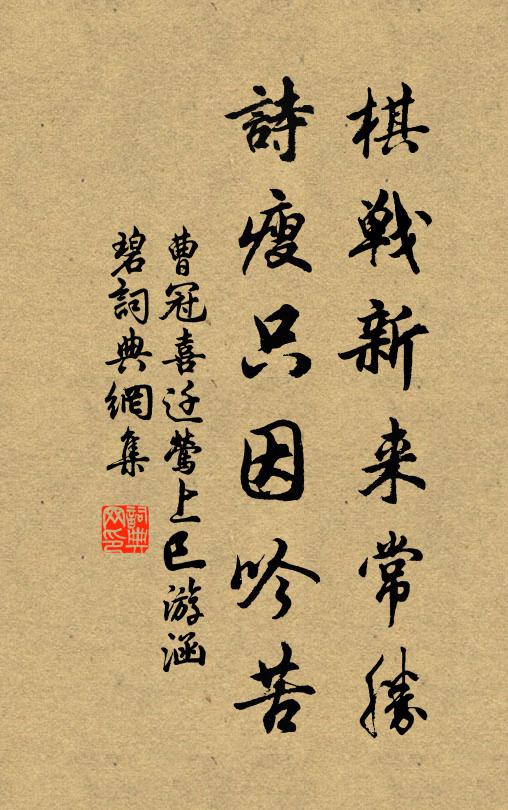 棋戦新来常勝
詩瘦只因吟苦
曹冠喜迁鶯上巳游涵
碧詞典網集
詞典网印